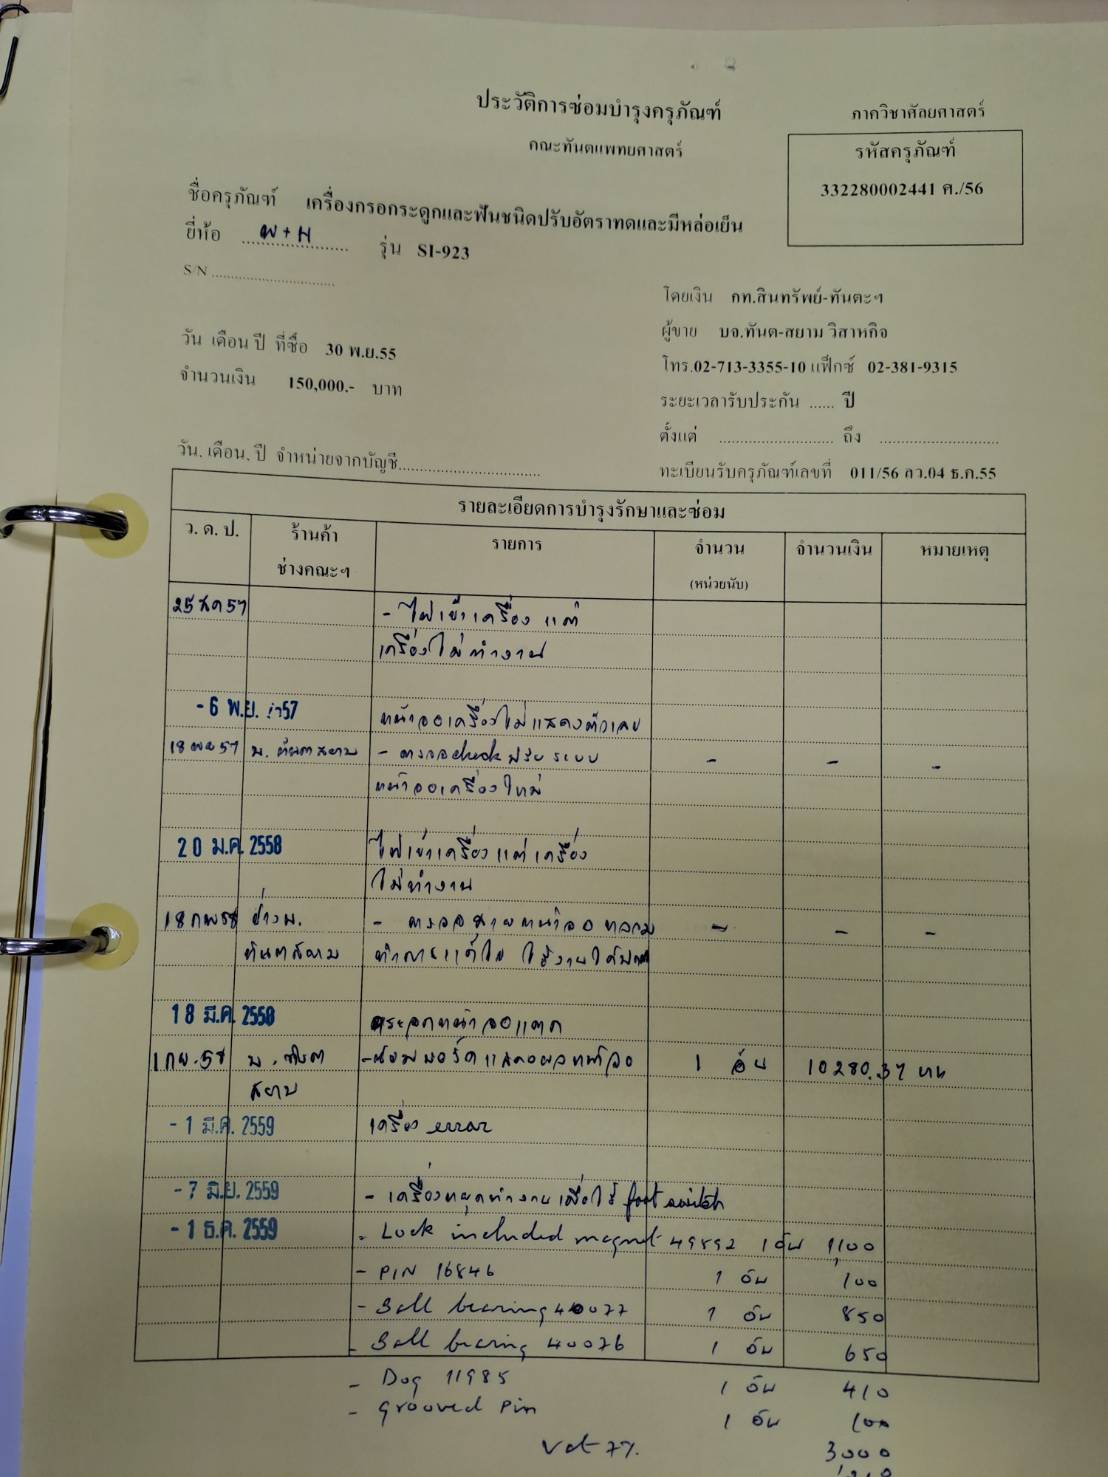 ประวัติการซ่อมบำรุงครุภัณฑ์
คณะทันตแพทยศาสตร์
ภาควิชาศัลยศาสตร์
รหัสครุภัณฑ์
332280002441 ค./56
ชื่อครุภัณฑ์ เครื่องกรอกระดูกและฟันชนิดปรับอัตราทดและมีหล่อเย็น
ยี่ห้อ W+H รุ่น SI-923
S/N
โดยเงิน กท.สินทรัพย์-ทันตะฯ
ผู้ขาย บจ.ทันต-สยาม วิสาหกิจ
วัน เดือน ปี ที่ซื้อ 30 พ.ย.55
โทร.02-713-3355-10 แฟ็กซ์ 02-381-9315
จำนวนเงิน 150,000.- บาท
ระยะเวลารับประกัน ...... ปี
ตั้งแต่ ถึง
วัน. เดือน. ปี จำหน่ายจากบัญชี
ทะเบียนรับครุภัณฑ์เลขที่ 011/56 ลว.04 ธ.ค.55
รายละเอียดการบำรุงรักษาและซ่อม
ว. ด. ป. ร้านค้า ช่างคณะฯ รายการ จำนวน (หน่วยนับ) จำนวนเงิน หมายเหตุ
25 สค 57 - ไฟเข้าเครื่อง แต่
เครื่องไม่ทำงาน
- 6 พ.ย. 57 หน้าจอเครื่องไม่แสดงตัวเลข
18 พย 57 บ. ทันตสยาม - ตรวจ check ปรับ ระบบ - - -
หน้าจอเครื่องใหม่
20 ม.ค. 2558 ไฟเข้าเครื่อง แต่ เครื่อง
ไม่ทำงาน
18 กพ 58 ช่าง บ. - ตรวจ สายหน้าจอ หลวม - - -
ทันตสยาม ทำการแก้ไข ใช้งานได้ปกติ
18 มี.ค. 2558 กระจกหน้าจอแตก
1 กย. 58 บ. ทันต - ซ่อมบอร์ดแสดงผลหน้าจอ 1 อัน 10280.37 บาท
สยาม
- 1 มี.ค. 2559 เครื่อง error
- 7 มิ.ย. 2559 - เครื่องหยุดทำงานเมื่อใช้ foot switch
- 1 ธ.ค. 2559 - Lock included magnet 49892 1 อัน 1,100
- PIN 16846 1 อัน 100
- Ball bearing 40077 1 อัน 850
- Ball bearing 40076 1 อัน 650
- Dog 11985 1 อัน 410
- Grooved Pin 1 อัน 100
Vat 7%. 3000